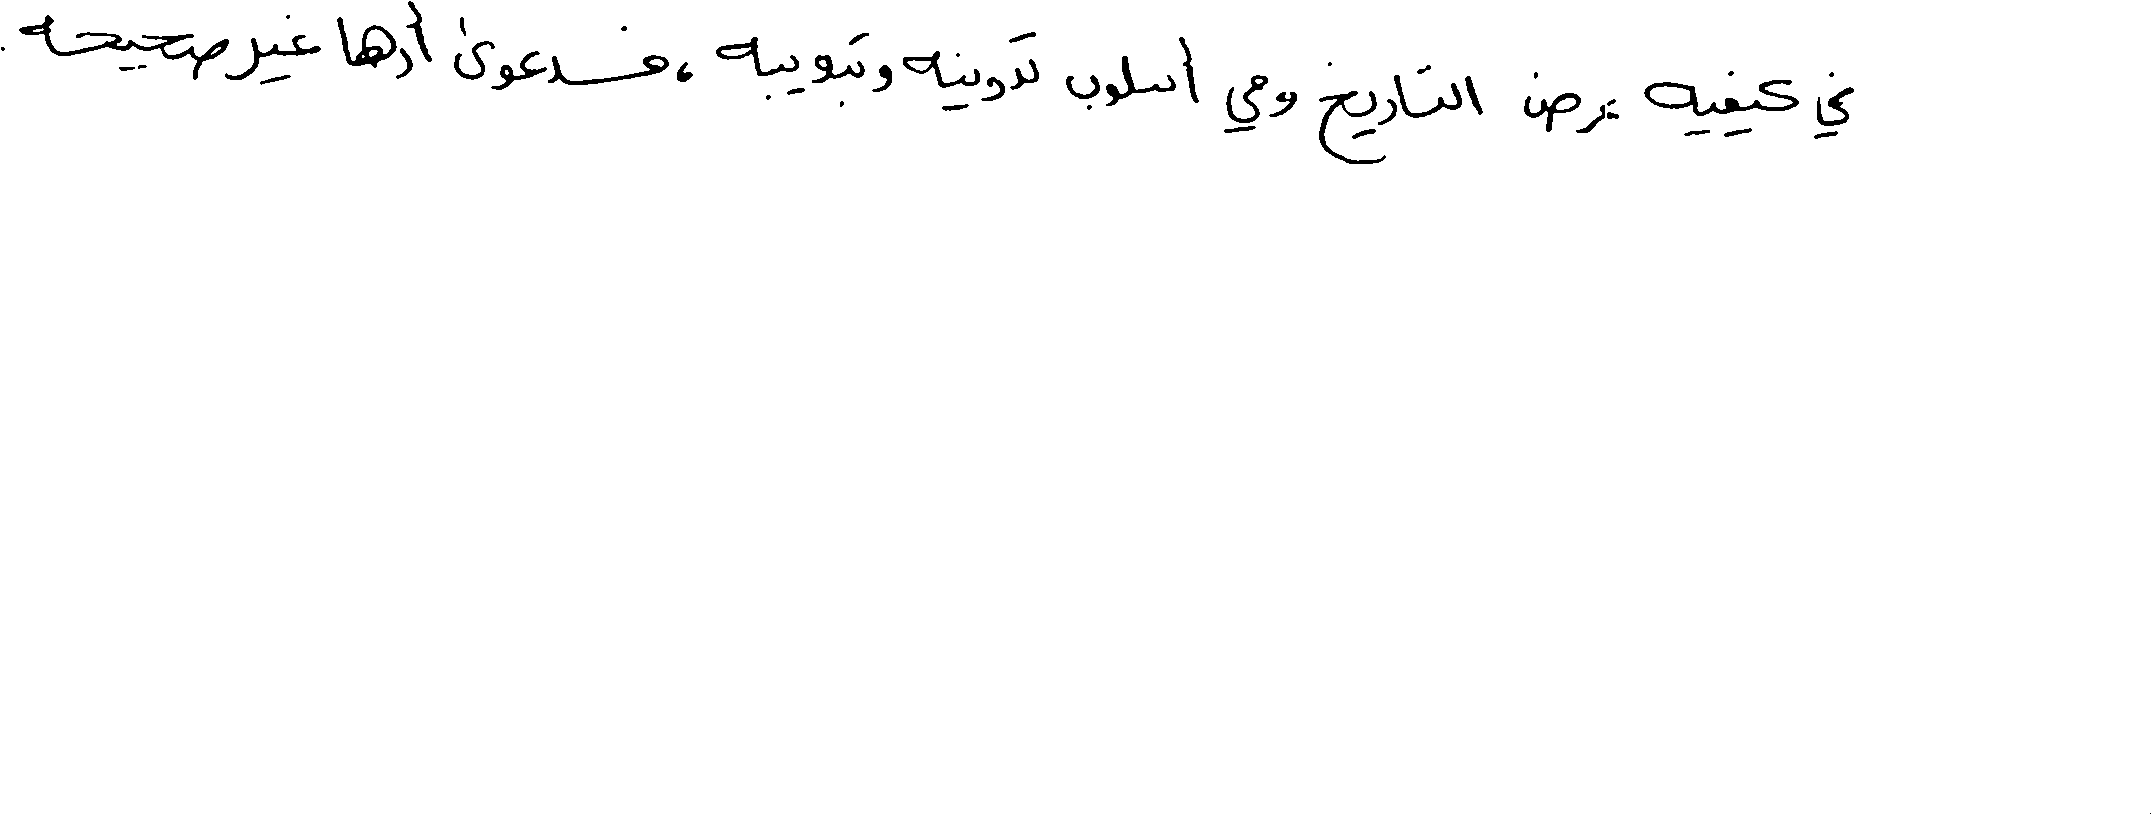 في كيفيه عرض التاريخ وفي أسلوب تدوينه وتبويبه ، فدعوى أدها غير صحيحه .